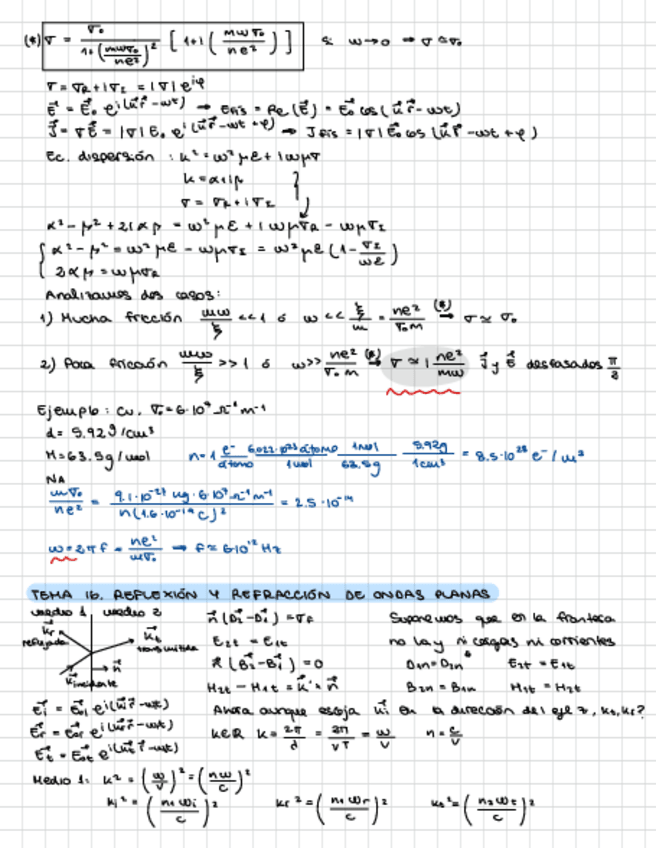 (*) σ = σ₀ / (1+(mωσ₀/ne²)²) [1+i(mωσ₀/ne²)] Si ω→0 ⇒ σ≃σ₀
σ = σR + iσI = |σ| e^{iφ}
E⃗ = E⃗₀ e^{i(k⃗r⃗-ωt)} → Efís = Re(E⃗) = E⃗₀ cos(k⃗r⃗-ωt)
J⃗ = σE⃗ = |σ| E₀ e^{i(k⃗r⃗-ωt+φ)} → Jfís = |σ| E⃗₀ cos(k⃗r⃗-ωt+φ)
Ec. dispersión : k² = ω²με + iωμσ
k = α+iβ
σ = σR + iσI
α²-β²+2iαβ = ω²με + iωμσR - ωμσI
α²-β² = ω²με - ωμσI = ω²με(1-σI/ωε)
2αβ = ωμσR
Analizamos dos casos:
1) Mucha fricción mω/ξ <<1 ó ω << ξ/m = ne²/σ₀m (*)→ σ≃σ₀
2) Poca fricción mω/ξ >>1 ó ω >> ne²/σ₀m (*)→ σ≃i ne²/mω J⃗ y E⃗ desfasados π/2
Ejemplo: Cu, σ₀=6·10⁷ Ω⁻¹m⁻¹
d= 8.92g/cm³
M=63.5g/mol n=1 e⁻/átomo 6.022·10²³átomo/1mol 1mol/63.5g 8.92g/1cm³ = 8.5·10²⁸ e⁻/m³
NA
mσ₀/ne² = 9.1·10⁻³¹ kg·6·10⁷Ω⁻¹m⁻¹ / n(1.6·10⁻¹⁹C)² = 2.5·10⁻¹⁴
ω=2πf = ne²/mσ₀ → f≈6·10¹² Hz
TEMA 16. REFLEXIÓN Y REFRACCIÓN DE ONDAS PLANAS
medio 1 medio 2
k⃗r reflejada
k⃗t transmitida
n⃗
k⃗ incidente
n⃗(D⃗₂-D⃗₁)=σF
E₂t = E₁t
n⃗(B⃗₂-B⃗₁)=0
H₂t - H₁t = K⃗×n⃗
Suponemos que en la frontera
no hay ni cargas ni corrientes
D₁n=D₂n E₂t=E₁t
B₂n=B₁n H₁t=H₂t
E⃗i = E⃗oi e^{i(k⃗ir⃗-ωt)} Ahora aunque escoja k⃗i en la dirección del eje z, kt, kr?
E⃗r = E⃗or e^{i(k⃗rr⃗-ωt)} k∈R k=2π/λ = 2π/vT = ω/v n=c/v
E⃗t = E⃗ot e^{i(k⃗tr⃗-ωt)}
Medio 1: k² = (ω/v)² = (nω/c)²
ki² = (n₁ωi/c)² kr² = (n₁ωr/c)² kt² = (n₂ωt/c)²